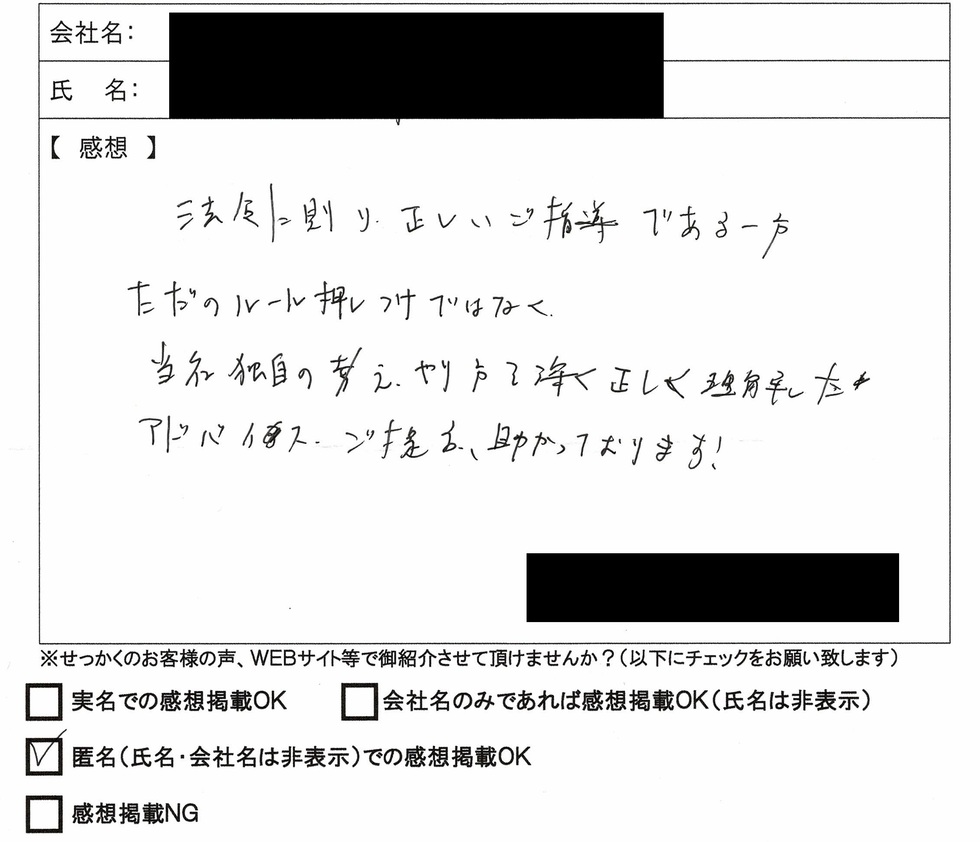 会社名：
氏　名：
【 感想 】
法律に則り、正しいご指導である一方
ただのルール押しつけではなく、
当社独自の考え、やり方を深く正しく理解した
アドバイス、ご提言、助かっております！
※せっかくのお客様の声、WEBサイト等で御紹介させて頂けませんか？（以下にチェックをお願い致します）
実名での感想掲載OK　会社名のみであれば感想掲載OK（氏名は非表示）
匿名（氏名・会社名は非表示）での感想掲載OK
感想掲載NG